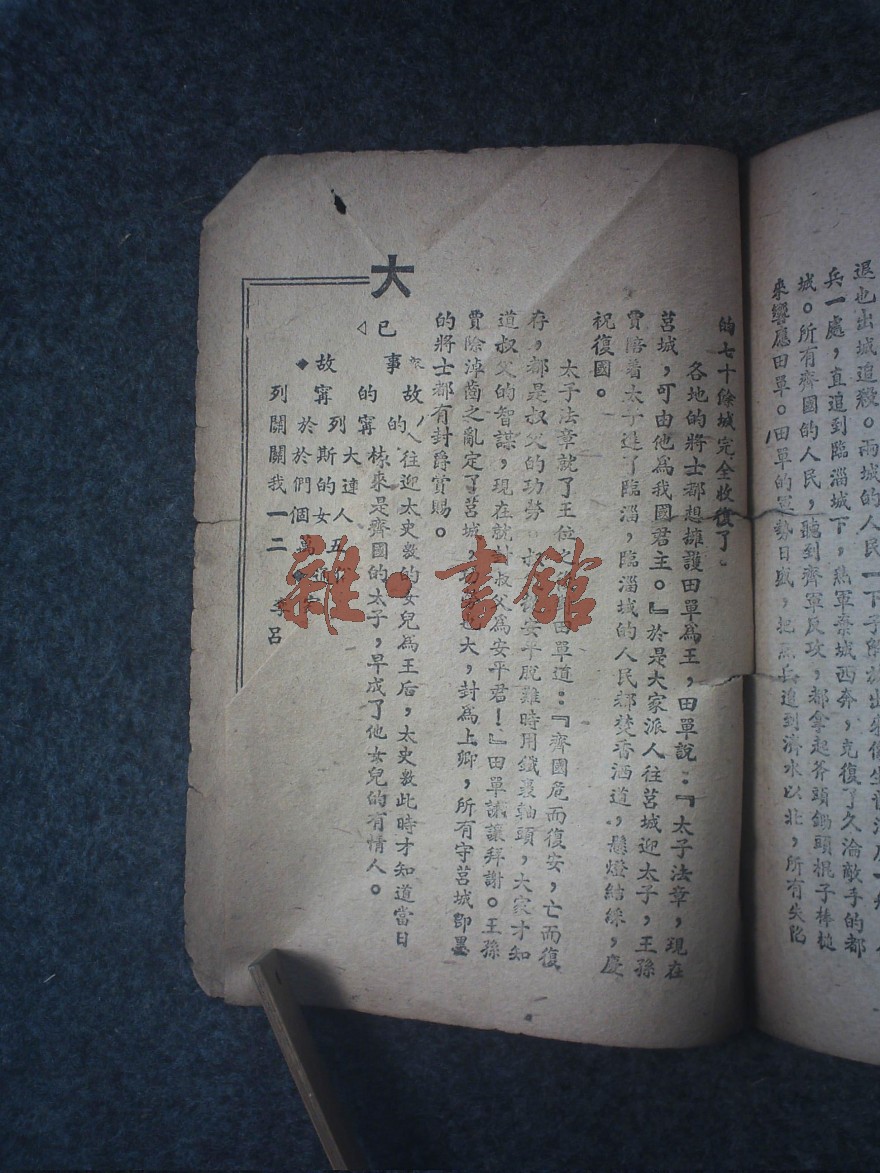 退也出城追殺。兩城的人民一下子
兵一處，直追到臨淄城下，燕軍棄城西奔，克復了久淪敵手的都
城。所有齊國的人民，聽到齊軍反攻，都拿起斧頭鋤頭棍子棒槌
來響應田單。田單的軍勢日盛，把燕兵追到濟水以北，所有失陷
的七十餘城完全收復了。
各地的將士都想擁護田單爲王，田單說：『太子法章，現在
莒城，可由他爲我國君主。』於是大家派人往莒城迎太子，王孫
賈陪着太子進了臨淄，臨淄城的人民都焚香洒道，懸燈結綵，慶
祝復國。
太子法章就了王位之 田單道：『齊國危而復安，亡而復
存，都是叔父的功勞。叔 安平脫難時用鐵裹軸頭，大家才知
道叔父的智謀，現在就封叔父爲安平君！』田單謙讓拜謝。王孫
賈除淖齒之亂定了莒城，功勞也大，封爲上卿，所有守莒城即墨
的將士都有封爵賞賜。
往迎太史敫的女兒爲王后，太史敫此時才知道當日
來是齊國的太子，早成了他女兒的有情人。
大
已
事
故
的
的寧
故寧列大達人五
◆於斯的女
列關於們個
關我一二
李呂
雜·書館